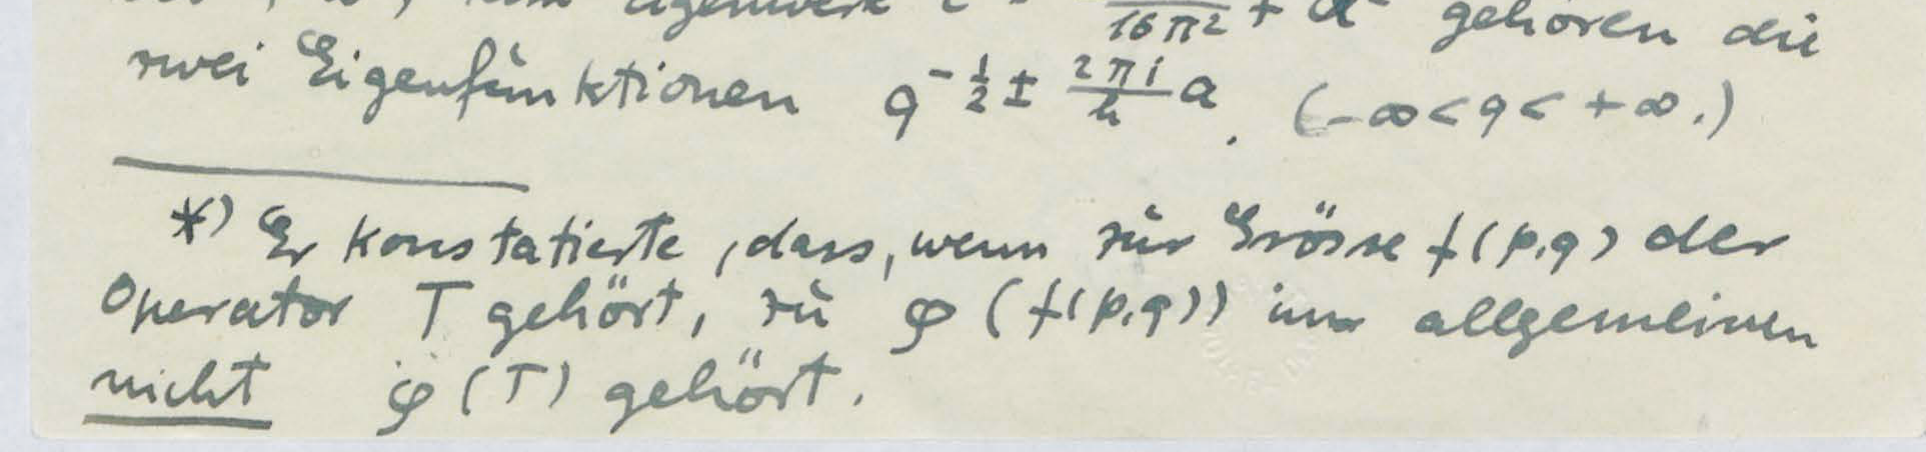 zum Eigenwert 16π² + a² gehören die
zwei Eigenfunktionen q^{-\frac{1}{2} ± \frac{2πi}{h}a}. (-∞<q<+∞.)
*) Er konstatierte, dass, wenn zur Grösse f(p,q) der
Operator T gehört, zu φ(f(p,q)) im allgemeinen
nicht φ(T) gehört.